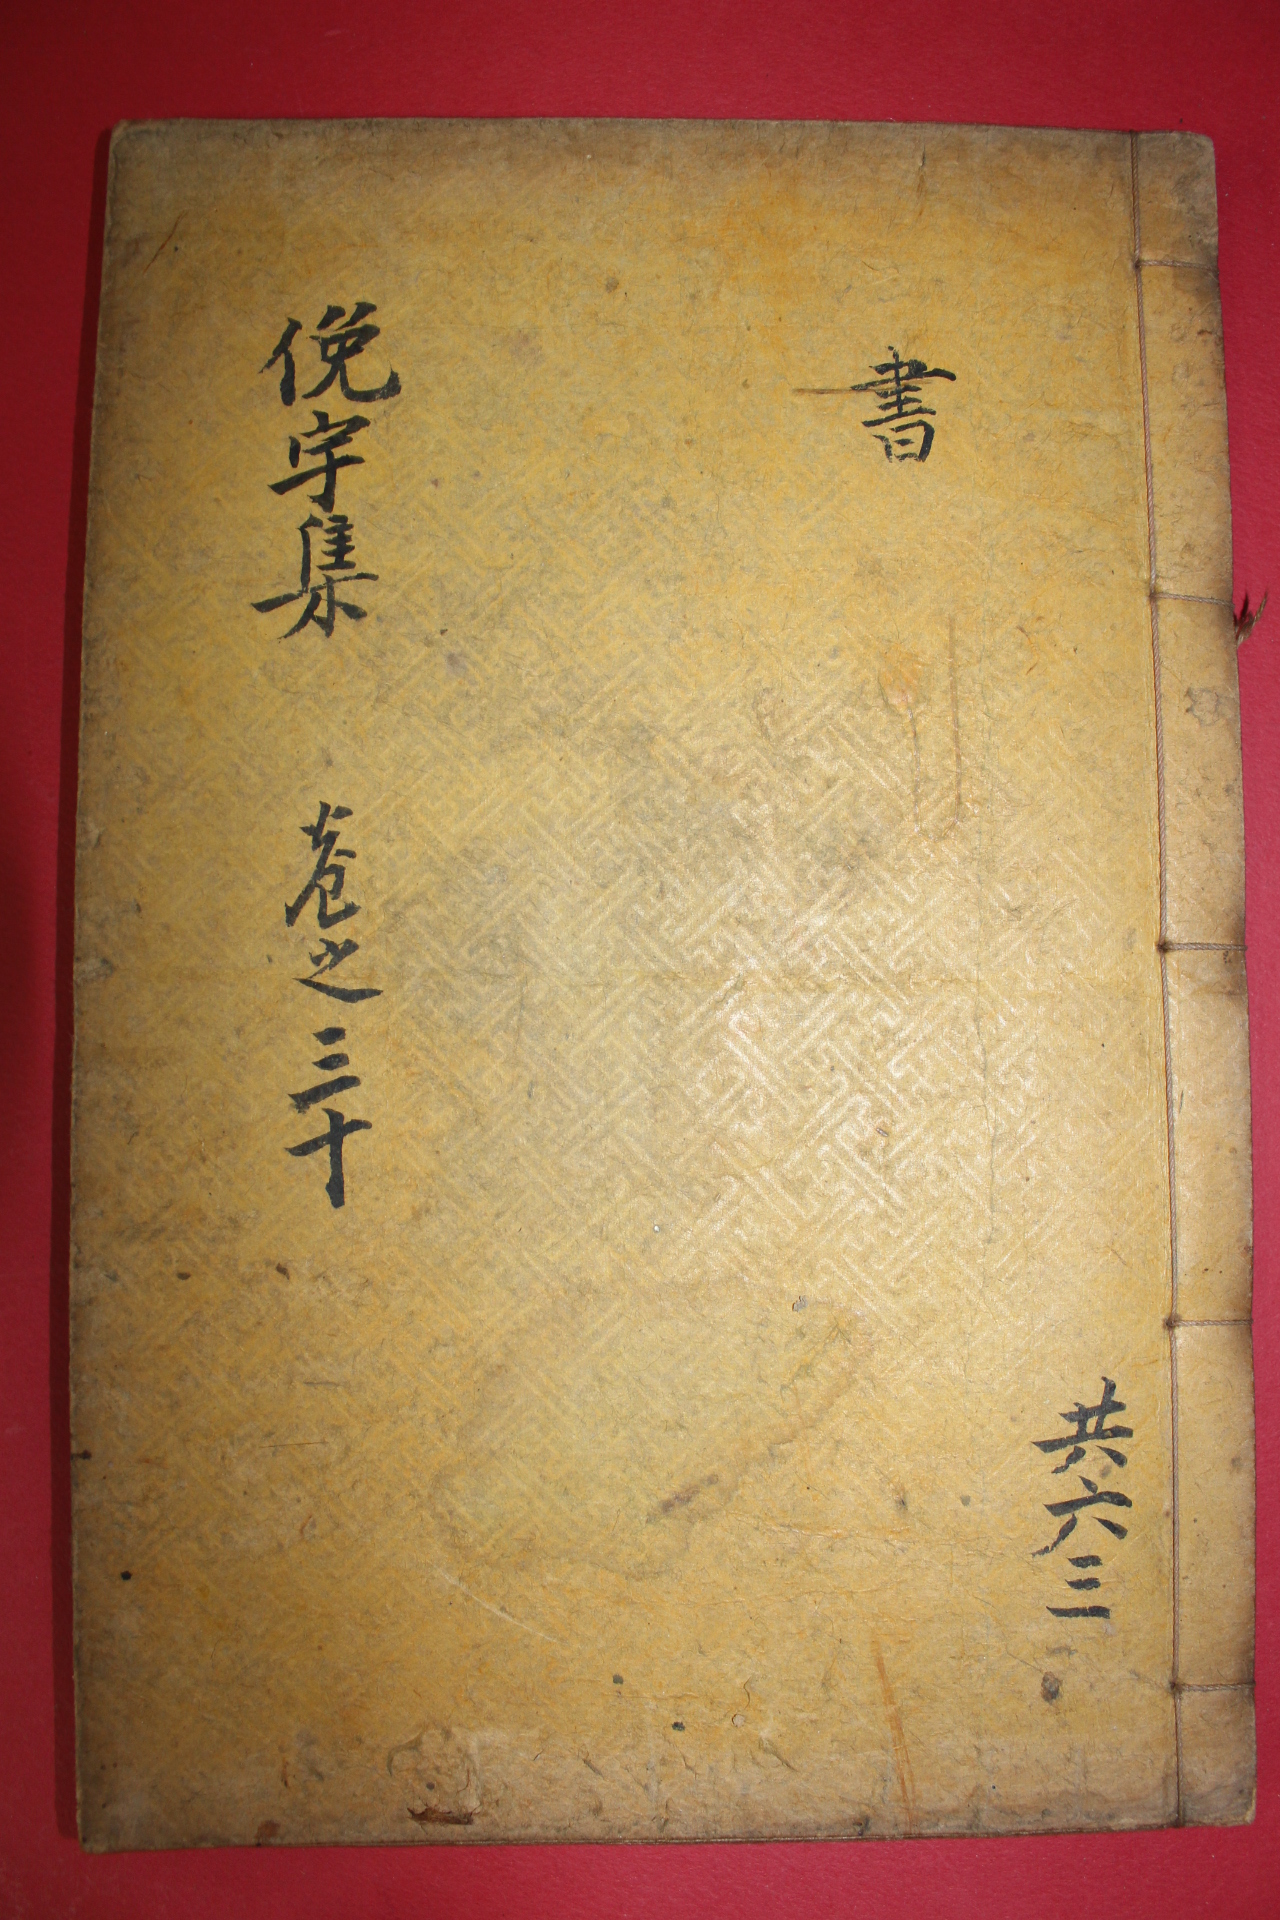 書
共六三
俛宇集 卷之三十